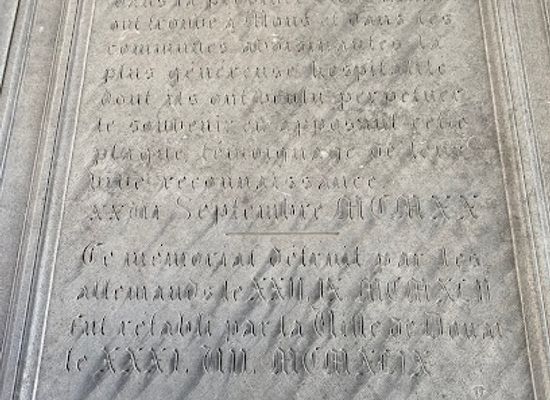 dans la province
ont trouvé à Mons et dans les
communes avoisinantes la
plus généreuse hospitalité
dont ils ont voulu perpétuer
le souvenir en apposant cette
plaque, témoignage de leur
vive reconnaissance.
XXIII Septembre MCMXX
Ce mémorial détruit par les
allemands le XXII. IX. MCMXL
fut rétabli par la Ville de Douai
le XXXI. VII. MCMXLIX